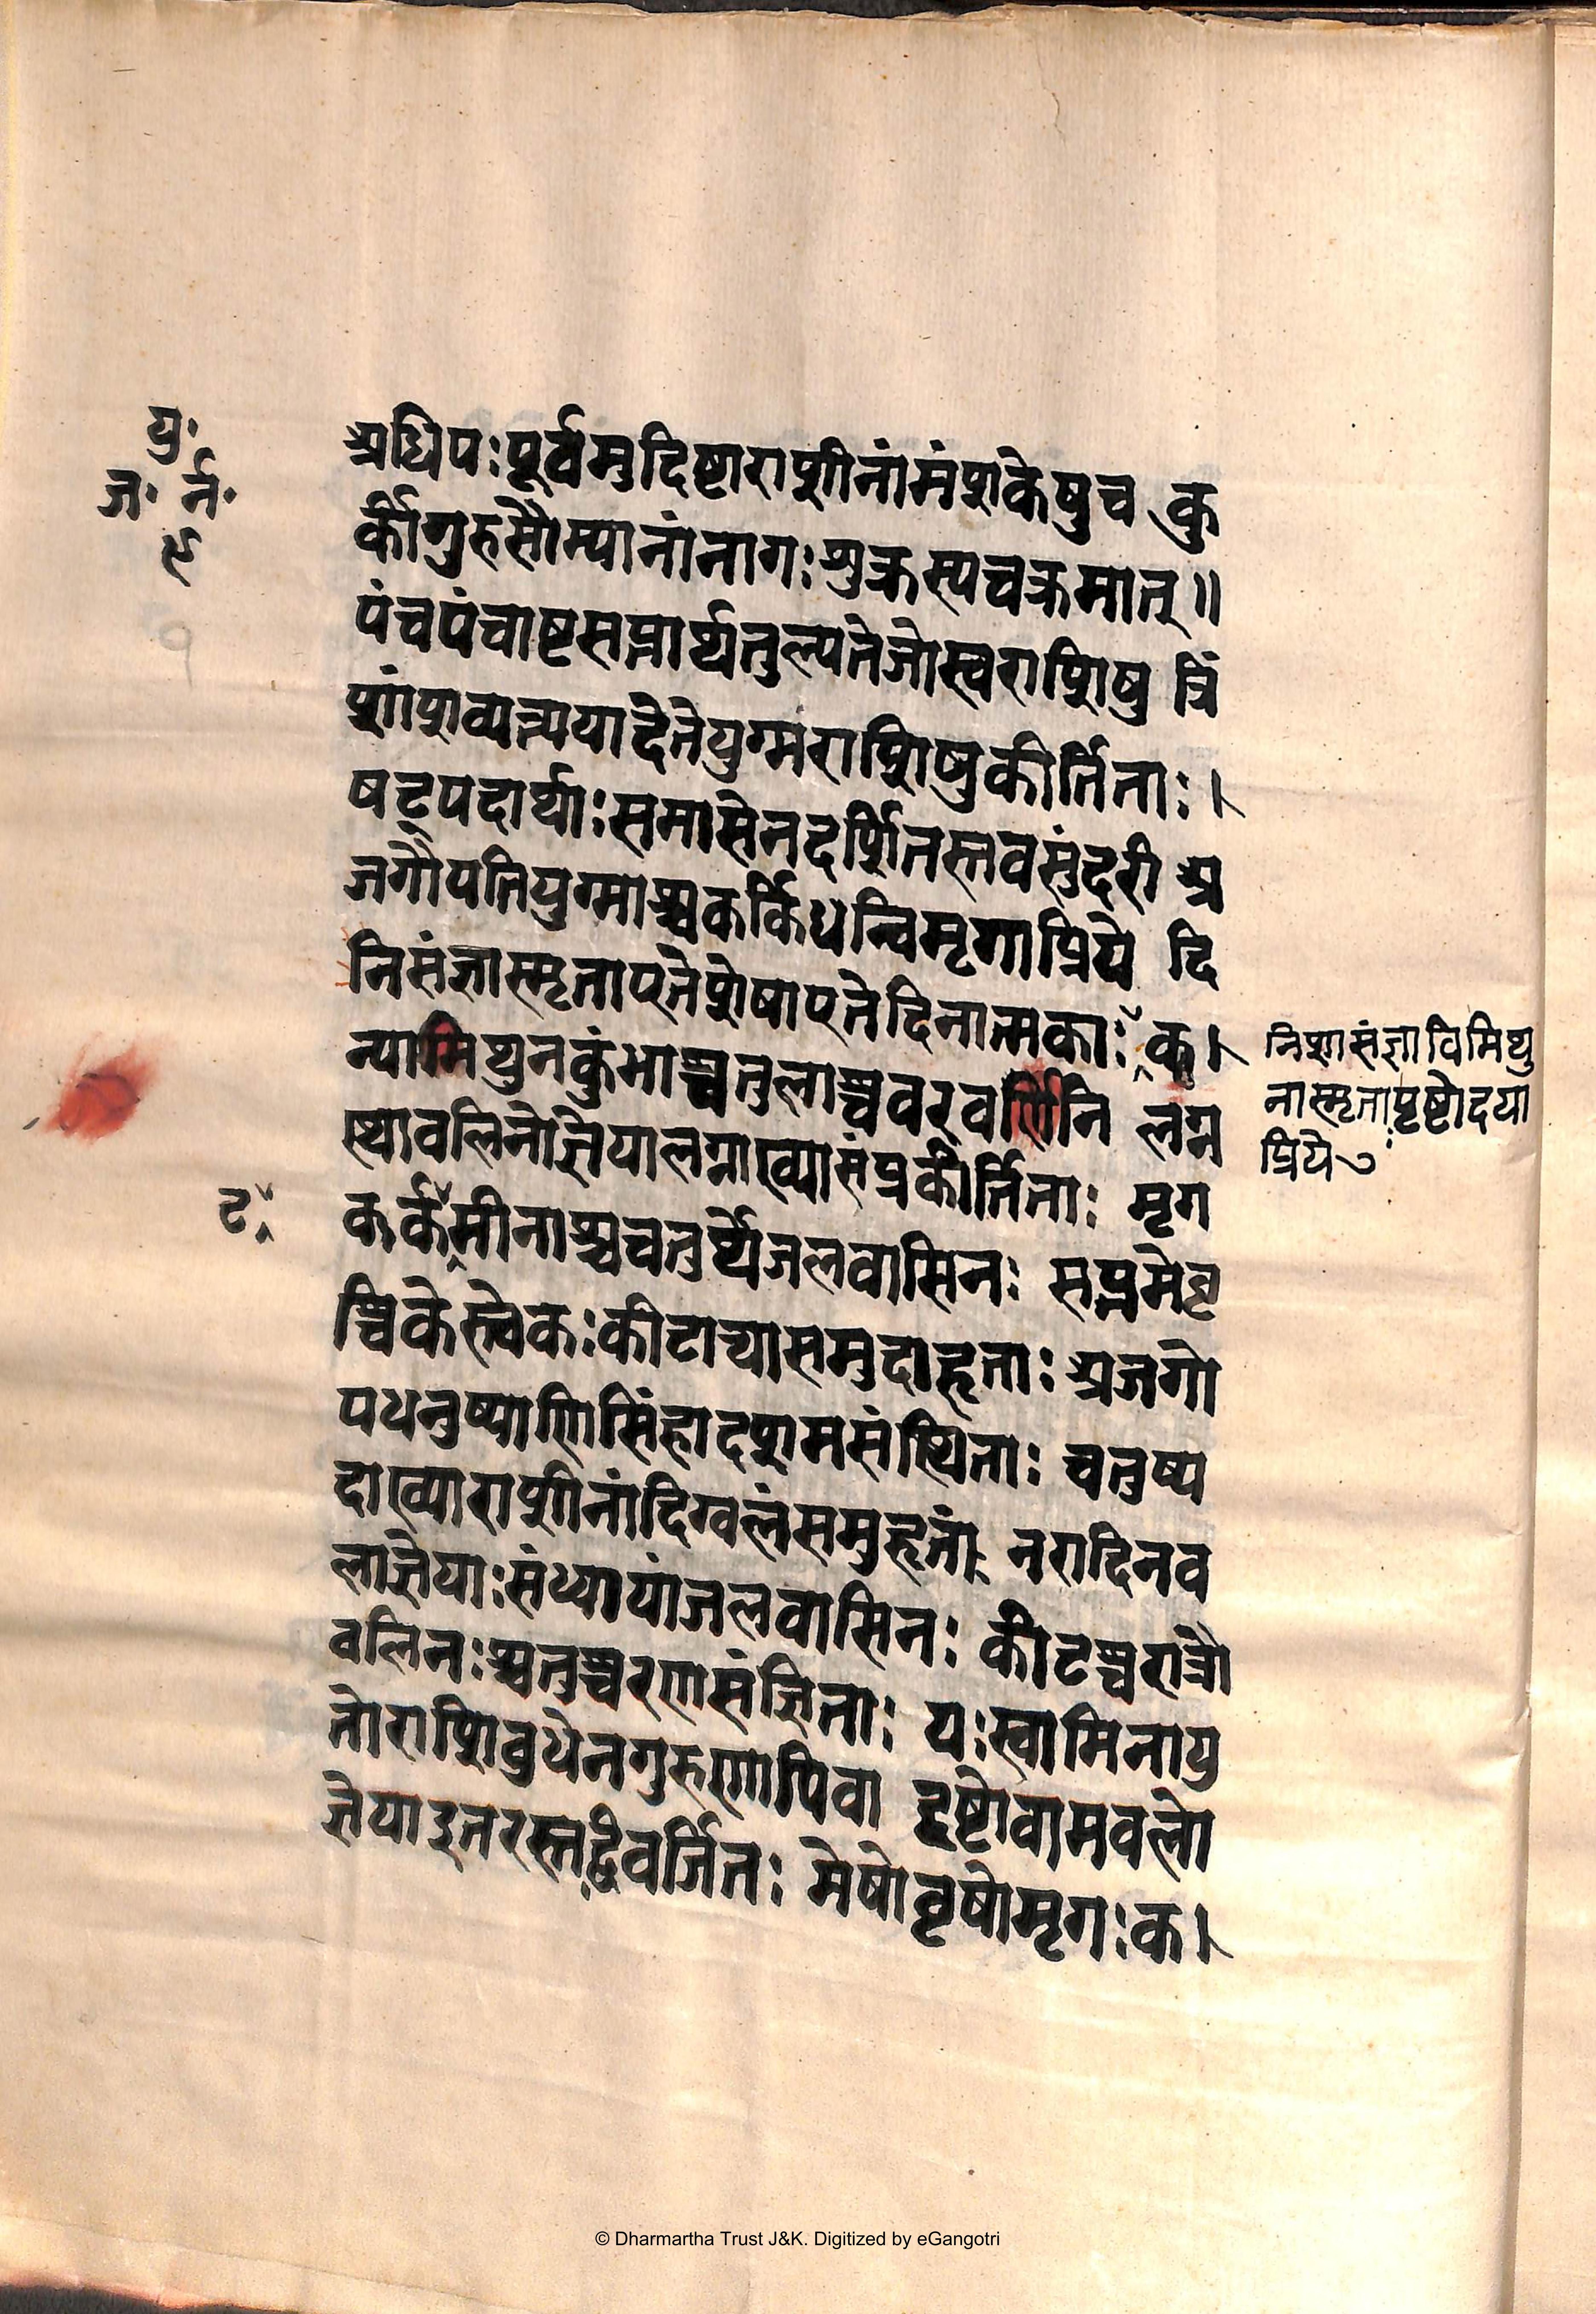 यु॰
ज॰ र्न॰
९
अधिपःपूर्वमुदिष्टाराशीनांमंशकेषुच कु
र्कीगुरुसौम्यानांनागःशुक्रस्यचक्रमात्॥
पंचपंचाष्टसप्तार्थतुल्यतेजोस्वराशिषु त्रिं
शांशव्यत्ययादेतेयुग्मराशिषुकीर्तिताः।
षट्पदार्थाःसमासेनदर्शितस्तवसुंदरी अ
जगोपतियुग्माश्चकर्किधन्विमृगाप्रिये दि
निसंज्ञास्मृताएतेशेषाएतेदिनात्मकाः क।
न्यामिथुनकुंभाश्चतुलाश्चवरवर्णिनि लग्न
स्थावलिनोज्ञेयालग्नाख्यासंप्रकीर्तिताः मृग
कर्कमीनाश्चचतुर्थेजलवासिनः सप्तमेवृ
श्चिकेस्त्वेकःकीटाख्यासमुदाहृताः अजगो
पधनुष्याणिसिंहादशमसंस्थिताः चतुष्प
दाख्याराशीनांदिग्वलंसमुहृतां नरादिनव
लाज्ञेयाःसंध्यायांजलवासिनः कीटश्चरात्रौ
वलिनःश्चतुश्चरणसंज्ञिताः यःस्वामिनायु
तोराशिवुधेनगुरुणापिवा दृष्टोवामवलो
ज्ञेयाऽनरस्तद्विवर्जितः मेषोवृषोमृगःक।
निशासंज्ञाविमिथु
नास्मृताःपृष्टोदया
प्रिये ७
ट
© Dharmartha Trust J&K. Digitized by eGangotri